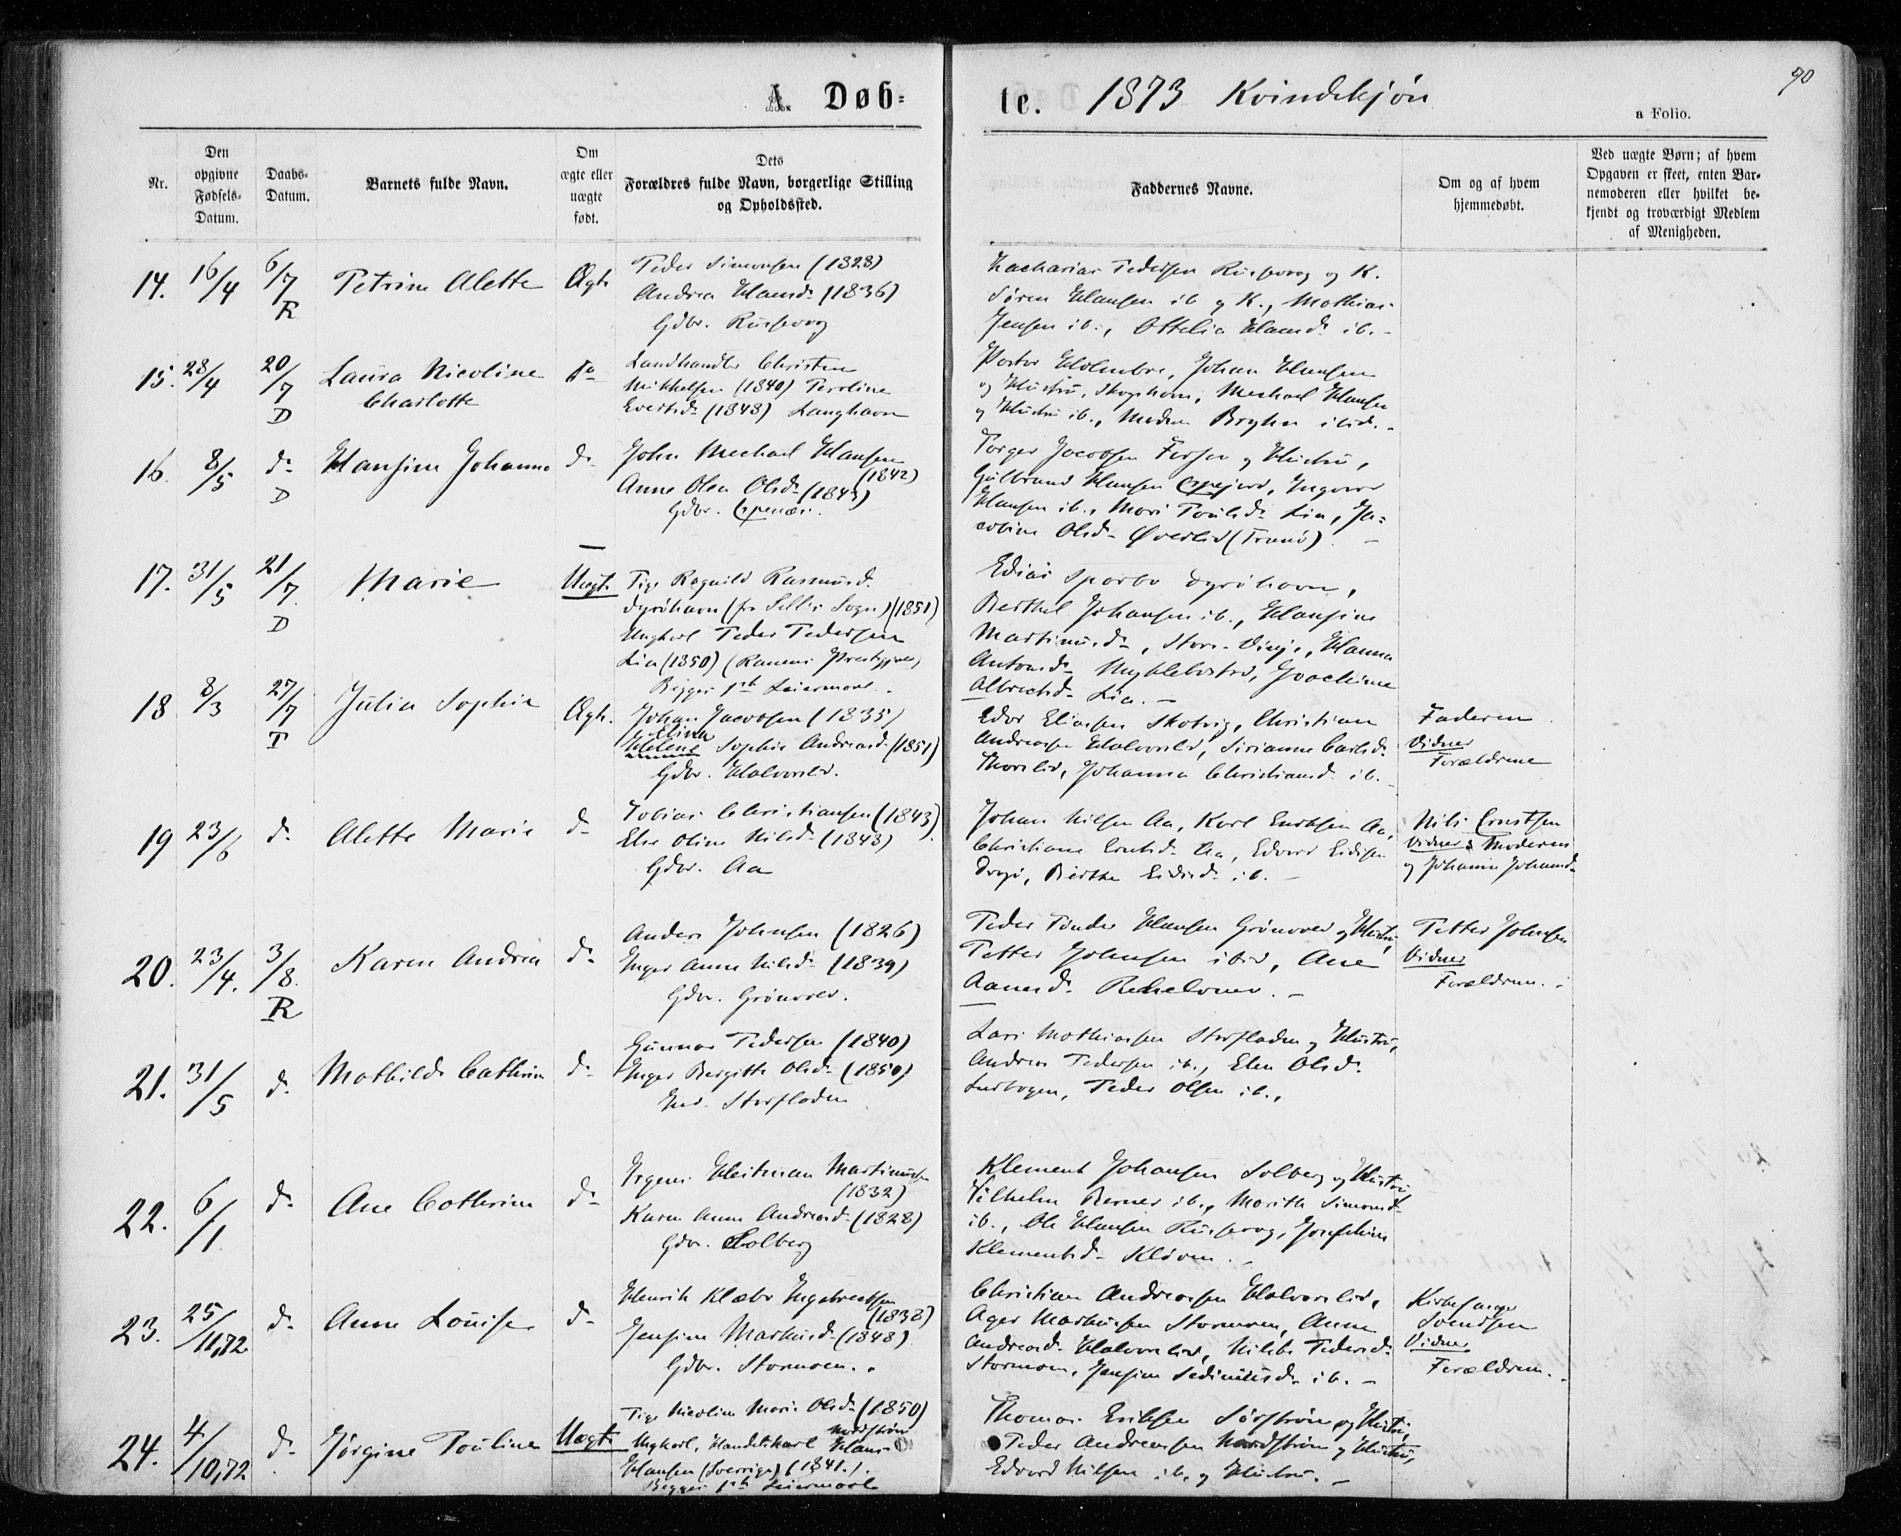 90
A. Døb-
te. 1873 Kvindekjøn
a Folio.
Nr.
Den
opgivne
Fødsels-
Datum.
Daabs-
Datum.
Barnets fulde Navn.
Om
ægte eller
uægte
født.
Dets
Forældres fulde Navn, borgerlige Stilling
og Opholdssted.
Faddernes Navne.
Om og af hvem
hjemmedøbt.
Ved uægte Børn; af hvem
Opgaven er skeet, enten Bar-
nemoderen eller hvilket be-
kjendt og troværdigt Medlem
af Menigheden.
14. 16/4 6/7 Petrine Alette Ægte
R
Peder Simonsen (1828)
Andrea Hansd. (1836)
Gdbr. Russevog
Zacharias Pedersen Russevog og K.
Søren Hansen ib. og K., Mathias
Jensen ib., Ottelia Hansd. ib.
15. 28/4 20/7 Laura Nicoline do
D
Charlotte
Landhandler Christen
Mikkelsen (1840) Peroline
Evertsd. (1848) Langhavn
Pastor Holmboe, Johan Hansen
og Hustru, Skoghavn, Mechael Hansen
og Hustru ib., Madam Bryhn ibid.
16. 8/5 d. Hansine Johanne d.
D
John Mechael Hansen
(1842)
Anne Olea Olsd. (1845)
Gdbr. Espenæs.
Torger Jacobsen Forsor og Hustru,
Gulbrand Hansen Espejord, Ingvord
Hansen ib., Mari Poulsd. Lia, Ja-
cobine Olsd. Øverlid (Tranø)
17. 31/5 21/7 Marie Uægte
D
Pige Ragnild Rasmusd.
Dyrøhavn (fr. Selbu Sogn) (1851)
Ungkarl Peder Pedersen
Lia (1850) (Ranens Præstegjeld)
Begges 1ste Leiermaal.
Edias Sparbo Dyrøhavn,
Berthel Johansen ib., Hansine
Martinusd., Store-Vinje, Hanna
Antonsd. Myklebostad, Joachime
Albrectsd. Lia.
18 8/3 27/7 Julia Sophie Ægte.
T
Johan Jacobsen (1835)
Eline
Helene Sophie Andreasd. (1851)
Gdbr. Halvorslid.
Edor Eliasen Skotvig, Christian
Andreasen Halvorslid, Sirianne Carlsd.
Thorslid, Johanna Christiansd. ib.
Faderen
Vidner
Forældrene
19 23/6 d. Alette Marie d.
Tobias Christiansen (1843)
Else Oline Nilsd. (1843)
Gdbr. Aa
Johan Nilsen Aa, Karl Eriksen Aa,
Christiane Erntsd. Aa, Edvard Eidisen
Drøjø, Berthe Eidisd. ib.
Nils Erntsen
Vidner: Moderen
og Johanna Johansd.
20. 23/4. 3/8. Karen Andrea d.
R
Anders Johnsen (1826)
Inger Anna Nilsd. (1839)
Gdbr. Grønvold.
Peder Tønder Hansen Grønvold og Hustru,
Petter Johnsen ibid, Ane
Aanesd.
Petter Johnsen
Vidner
Forældrene.
21. 31/5 d. Mathilde Cathrine d.
Gunnar Pedersen (1840)
Inger Bergitte Olsd. (1850)
Ind. Storfladen
Lars Mathiasen Storfladen og Hustru,
Andreas Pedersen ib., Elen Olsd.
Luebogen, Peder Olsen ib.,
22. 6/1 d. Ane Cathrine d.
Irgens Heitman Martinussen
(1832)
Karen Anna Andreasd. (1828)
Gdbr. Solberg
Klement Johansen Solberg og Hustru
Vilhelm Berner ib., Marith Simonsd.
ib., Ole Hansen Russevog, Josephine
Klementsd. Kløven.
23. 25/11,72 d. Anne Louise d.
Henrik Klæbo Ingebrectsen
(1838)
Jensine Markusd. (1848)
Gdbr. Stormoen.
Christian Andreasen Halvorslid,
Ager Markusen Stormoen, Anne
Andreasd. Halvorslid, Nilske Pedersd.
Stormoen, Jensine Sedeniusd. ib.
Kirkesanger
Svendsen
Vidner
Forældrene.
24. 4/10,72 d. Jørgine Pouline Uægte
Pige Nicoline Marie Olsd. (1850)
Nordstrøm
Ungkarl, Handelskarl Hans
Hansen (Sverrige) (1841.)
Begges 1ste Leiermaal
Thomas Eriksen Sørstrøm og Hustru,
Peder Andreasen Nordstrøm og Hustru,
Edvard Nilsen ib. og Hustru.